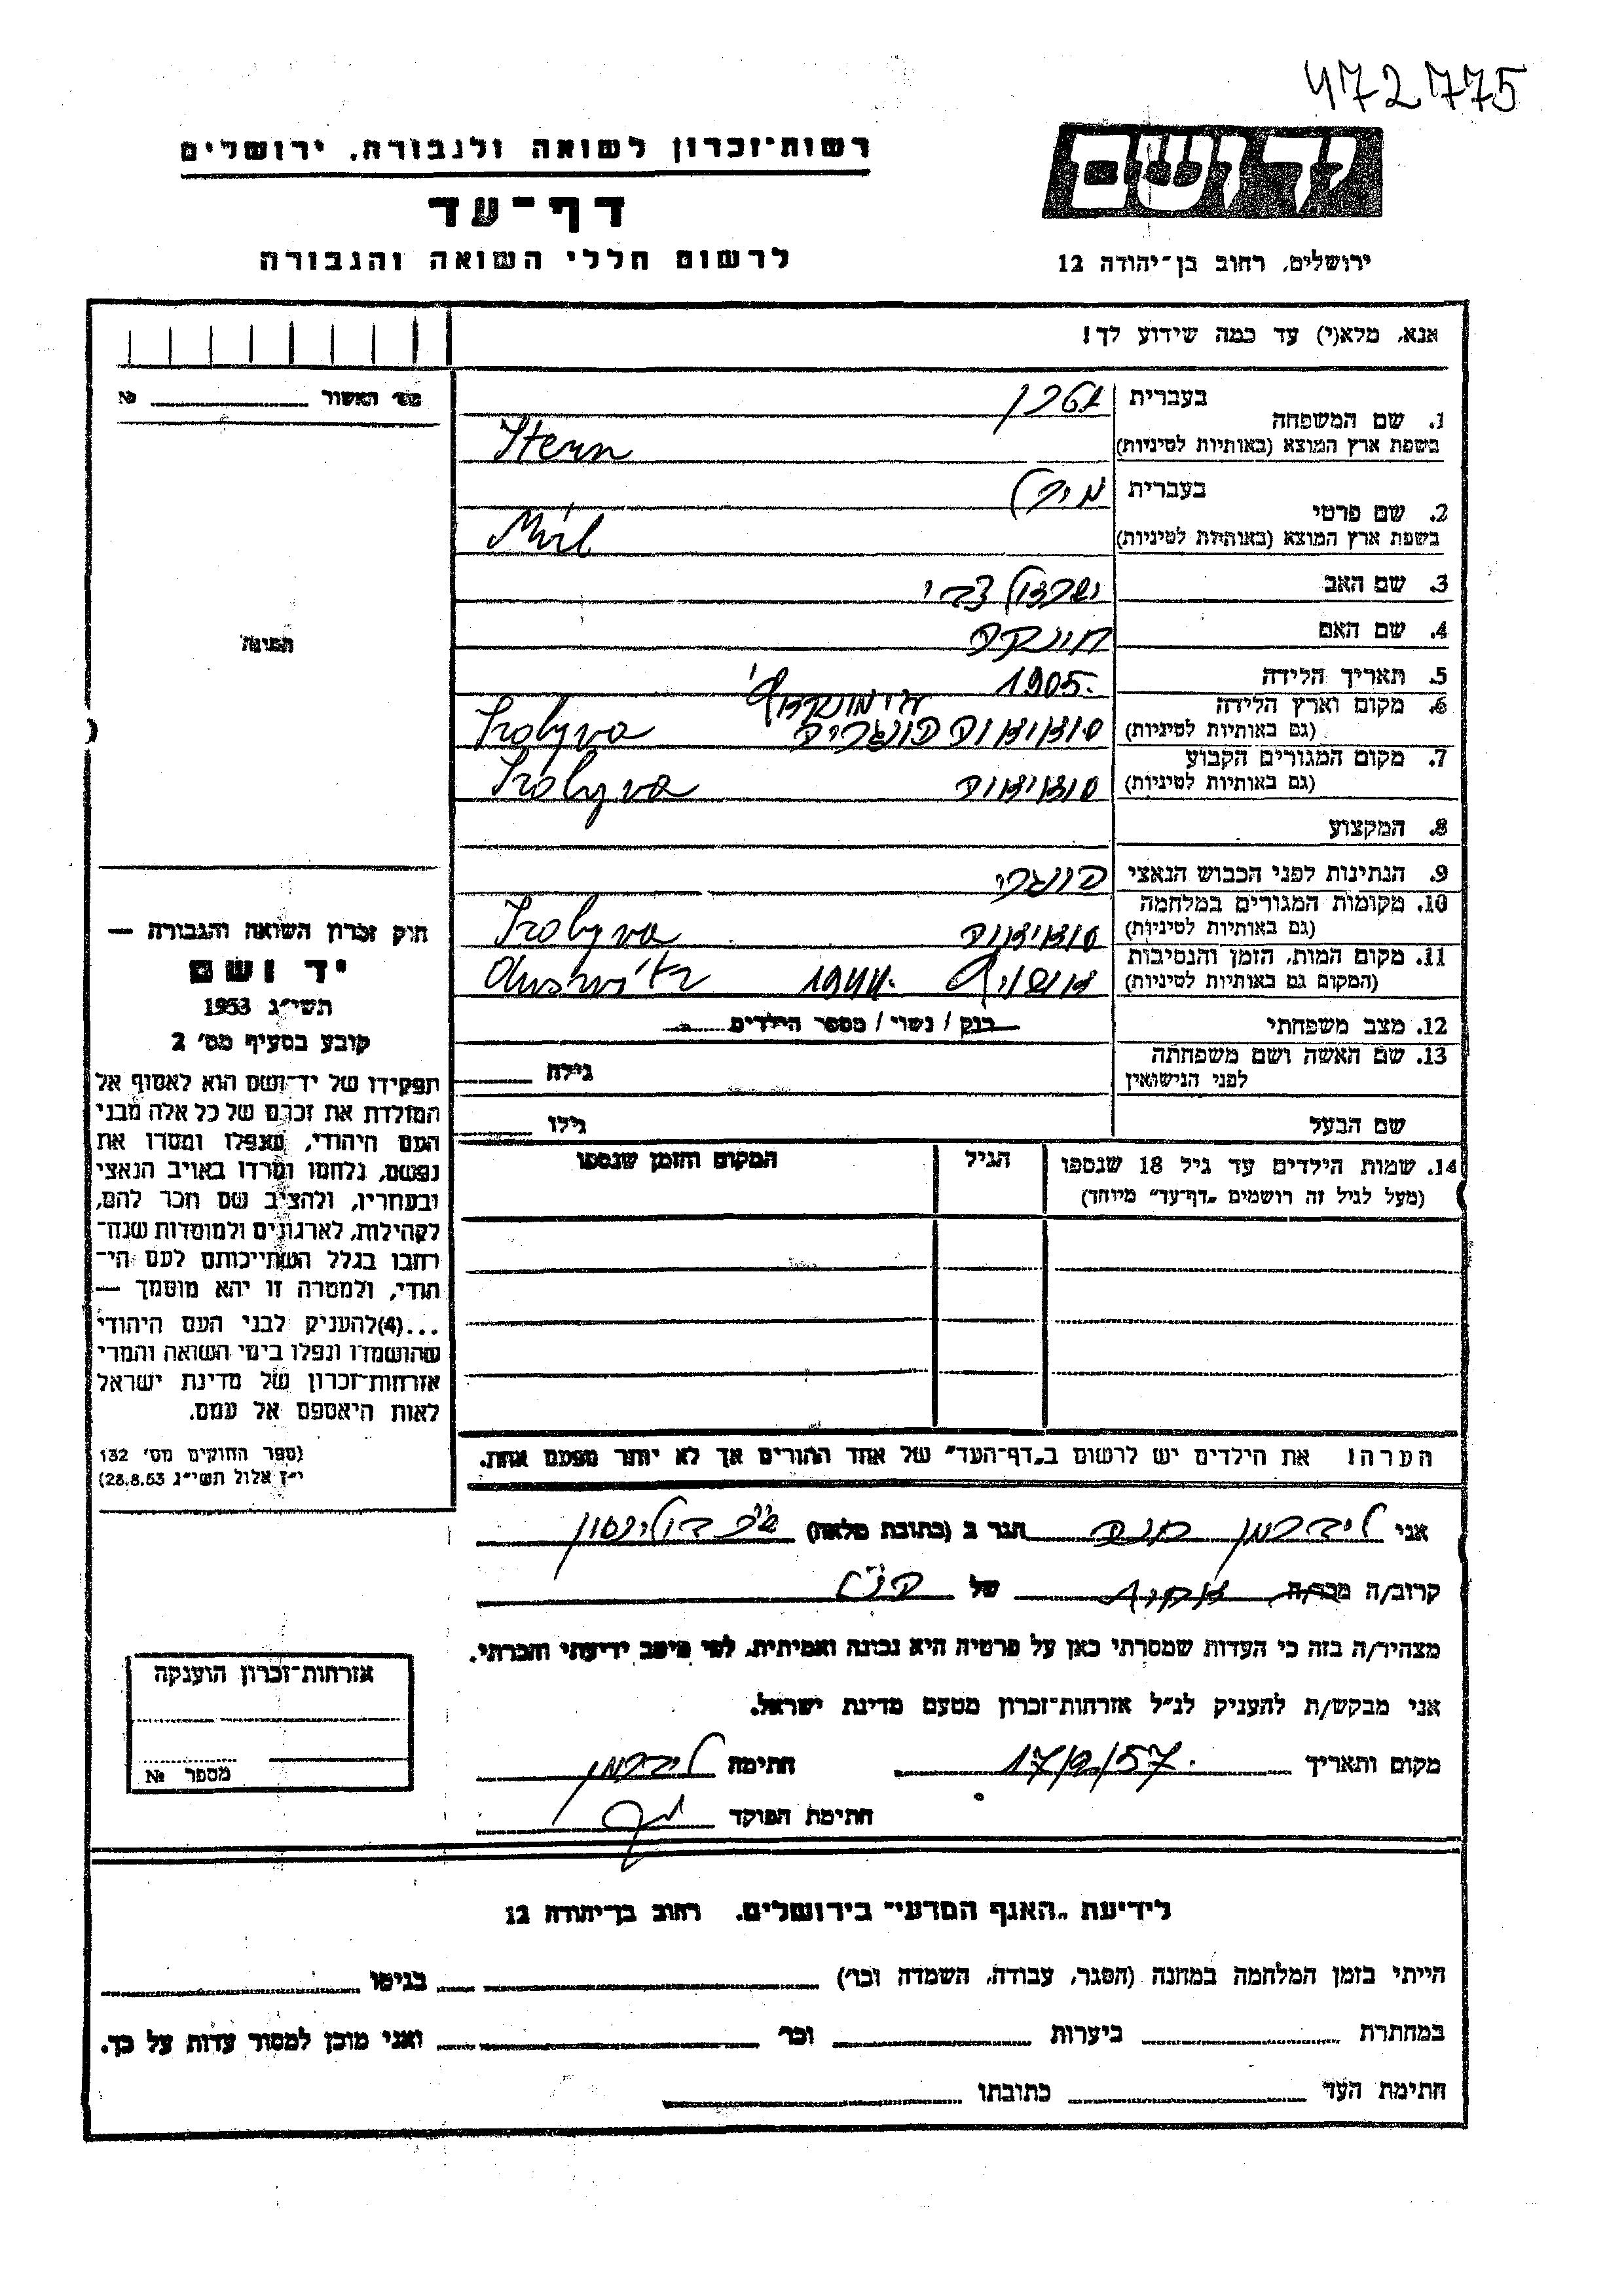 472775
רשות־זכרון לשואה ולגבורה, ירושלים
דף־עד
לרשום חללי השואה והגבורה
יד ושם
ירושלים, רחוב בן־יהודה 12
אנא, מלא(י) עד כמה שידוע לך!
מס׳ האשור № 
1. שם המשפחה בעברית שטרן
בשפת ארץ המוצא (באותיות לטיניות) Stern
2. שם פרטי בעברית
בשפת ארץ המוצא (באותיות לטיניות)
3. שם האב ישראל צבי
4. שם האם
5. תאריך הלידה 1905.
6. מקום וארץ הלידה
(גם באותיות לטיניות) Szolyva
7. מקום המגורים הקבוע
(גם באותיות לטיניות) Szolyva
8. המקצוע
9. הנתינות לפני הכבוש הנאצי הונגרי
10. מקומות המגורים במלחמה
(גם באותיות לטיניות) Szolyva
11. מקום המות, הזמן והנסיבות
(המקום גם באותיות לטיניות) אושויץ 1944. Auschwitz
12. מצב משפחתי רוק / נשוי / מספר הילדים
13. שם האשה ושם משפחתה
לפני הנישואין גילה
שם הבעל גילו
14. שמות הילדים עד גיל 18 שנספו הגיל המקום והזמן שנספו
(מעל לגיל זה רושמים „דף־עד״ מיוחד)
הערה! את הילדים יש לרשום ב„דף־העד״ של אחד ההורים אך לא יותר מפעם אחת.
התמונה
חוק זכרון השואה והגבורה —
יד ושם
תשי״ג 1953
קובע בסעיף מס׳ 2
תפקידו של יד־ושם הוא לאסוף אל
המולדת את זכרם של כל אלה מבני
העם היהודי, שנפלו ומסרו את
נפשם, נלחמו ומרדו באויב הנאצי
ובעוזריו, ולהציב שם וזכר להם,
לקהילות, לארגונים ולמוסדות שנח־
רבו בגלל השתייכותם לעם הי־
הודי, ולמטרה זו יהא מוסמך —
...(4)להעניק לבני העם היהודי
שהושמדו ונפלו בימי השואה והמרי
אזרחות־זכרון של מדינת ישראל
לאות היאספם אל עמם.
(ספר החוקים מס׳ 132
י״ז אלול תשי״ג 28.8.53)
אני ליברמן הגר ב (כתובת מלאה)
קרוב/ה מכר/ה של
מצהיר/ה בזה כי העדות שמסרתי כאן על פרטיה היא נכונה ואמיתית, לפי מיטב ידיעתי והכרתי.
אני מבקש/ת להעניק לנ״ל אזרחות־זכרון מטעם מדינת ישראל.
מקום ותאריך חתימה ליברמן
חתימת הפוקד
אזרחות־זכרון הוענקה
מספר №
לידיעת „האגף המדעי״ בירושלים. רחוב בן־יהודה 12
הייתי בזמן המלחמה במחנה (הסגר, עבודה, השמדה וכו׳) בגיטו
במחתרת ביערות וכו׳ ואני מוכן למסור עדות על כך.
חתימת העד כתובתו